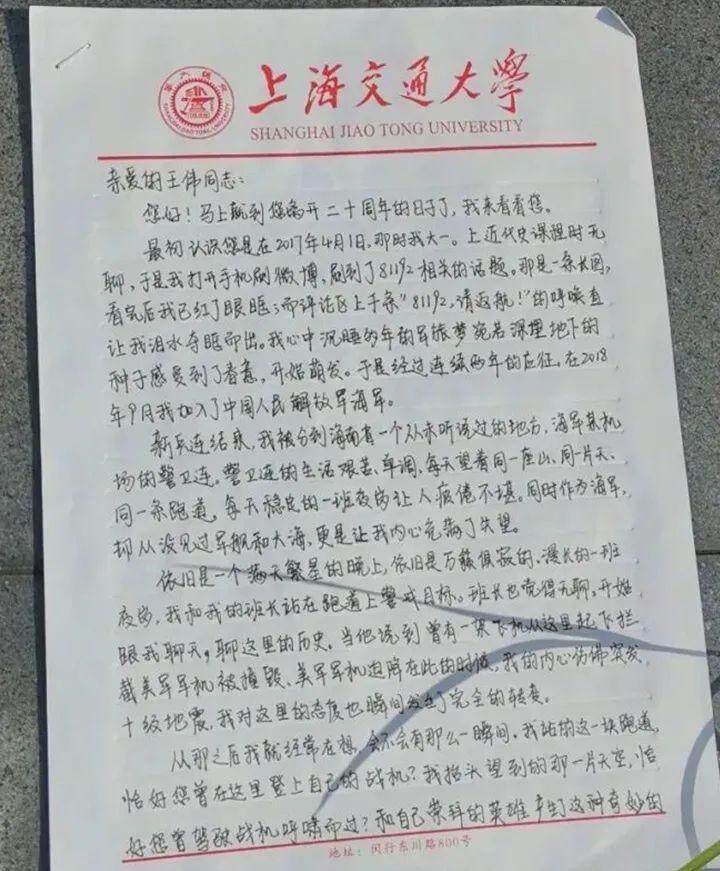 上海交通大学
SHANGHAI JIAO TONG UNIVERSITY
亲爱的王伟同志：
您好！马上就到您离开二十周年的日子了，我来看看您。
最初认识您是在2017年4月1日，那时我大一。上近代史课程时无
聊，于是我打开手机刷微博，刷到了81192相关的话题。那是一条长图，
看完后我已红了眼眶；而评论区上千条“81192，请返航！”的呼唤直
让我泪水夺眶而出。我心中沉睡多年的军旅梦宛若深埋地下的
种子感受到了春意，开始萌发。于是经过连续两年的应征，在2018
年9月我加入了中国人民解放军海军。
新兵连结束，我被分到海南省一个从未听说过的地方，海军某机
场的警卫连。警卫连的生活艰苦、单调，每天望着同一座山、同一片天、
同一条跑道，每天稳定的一班夜岗让人疲倦不堪。同时作为海军，
却从没见过军舰和大海，更是让我内心充满了失望。
依旧是一个满天繁星的晚上，依旧是万籁俱寂的、漫长的一班
夜岗，我和我的班长站在跑道上警戒目标。班长也觉得无聊，开始
跟我聊天，聊这里的历史。当他说到曾有一架飞机从这里起飞拦
截美军军机被撞毁、美军军机迫降在此的时候，我的内心仿佛突发
十级地震，我对这里的态度也瞬间发生了完全的转变。
从那之后我就经常在想，会不会有那么一瞬间，我站的这一块跑道，
恰好您曾在这里登上自己的战机？我抬头望到的那一片天空，恰
好您曾驾驶战机呼啸而过？和自己崇拜的英雄产生这种奇妙的
地址：闵行东川路800号